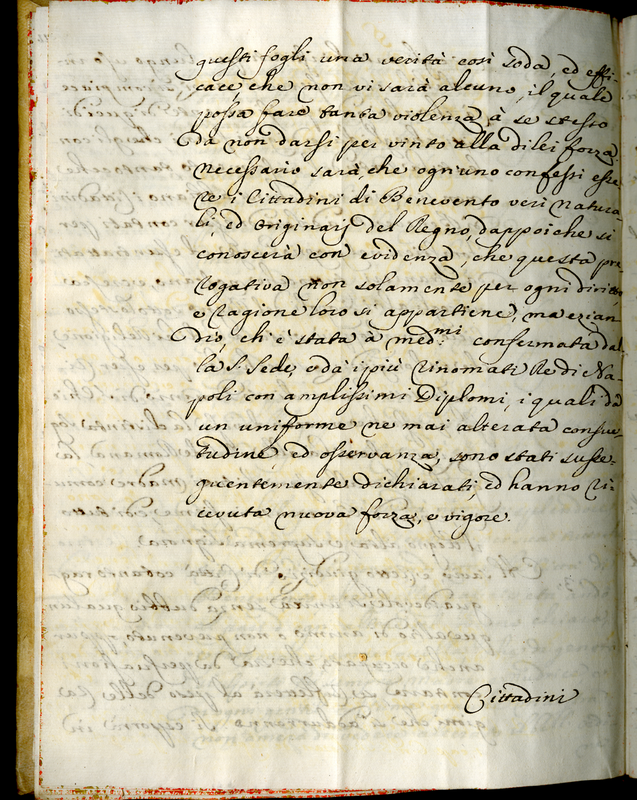 questi fogli una verità così soda, ed effi
cace che non vi sarà alcuno, il quale
possa fare tanta violenza à se stesso
da non darsi per vinto alla di lei forza.
necessario sarà, che ogn'uno confessi esse-
re i Cittadini di Benevento veri natura-
li, ed Originarj del Regno, dappoiche si
conoscerà con evidenza, che questa pre-
rogativa non solamente per ogni diritto
e ragione loro si appartiene, ma ezian-
dio, ch'è stata à med.mi confermata dal-
la S. Sede, e dà i più rinomati Re di Na-
poli con amplissimi Diplomi, i quali dà
un uniforme ne mai alterata consue-
tudine, ed osservanza, sono stati susse-
quentemente dichiarati, ed hanno ri-
cevuta nuova forza, e vigore.
Cittadini